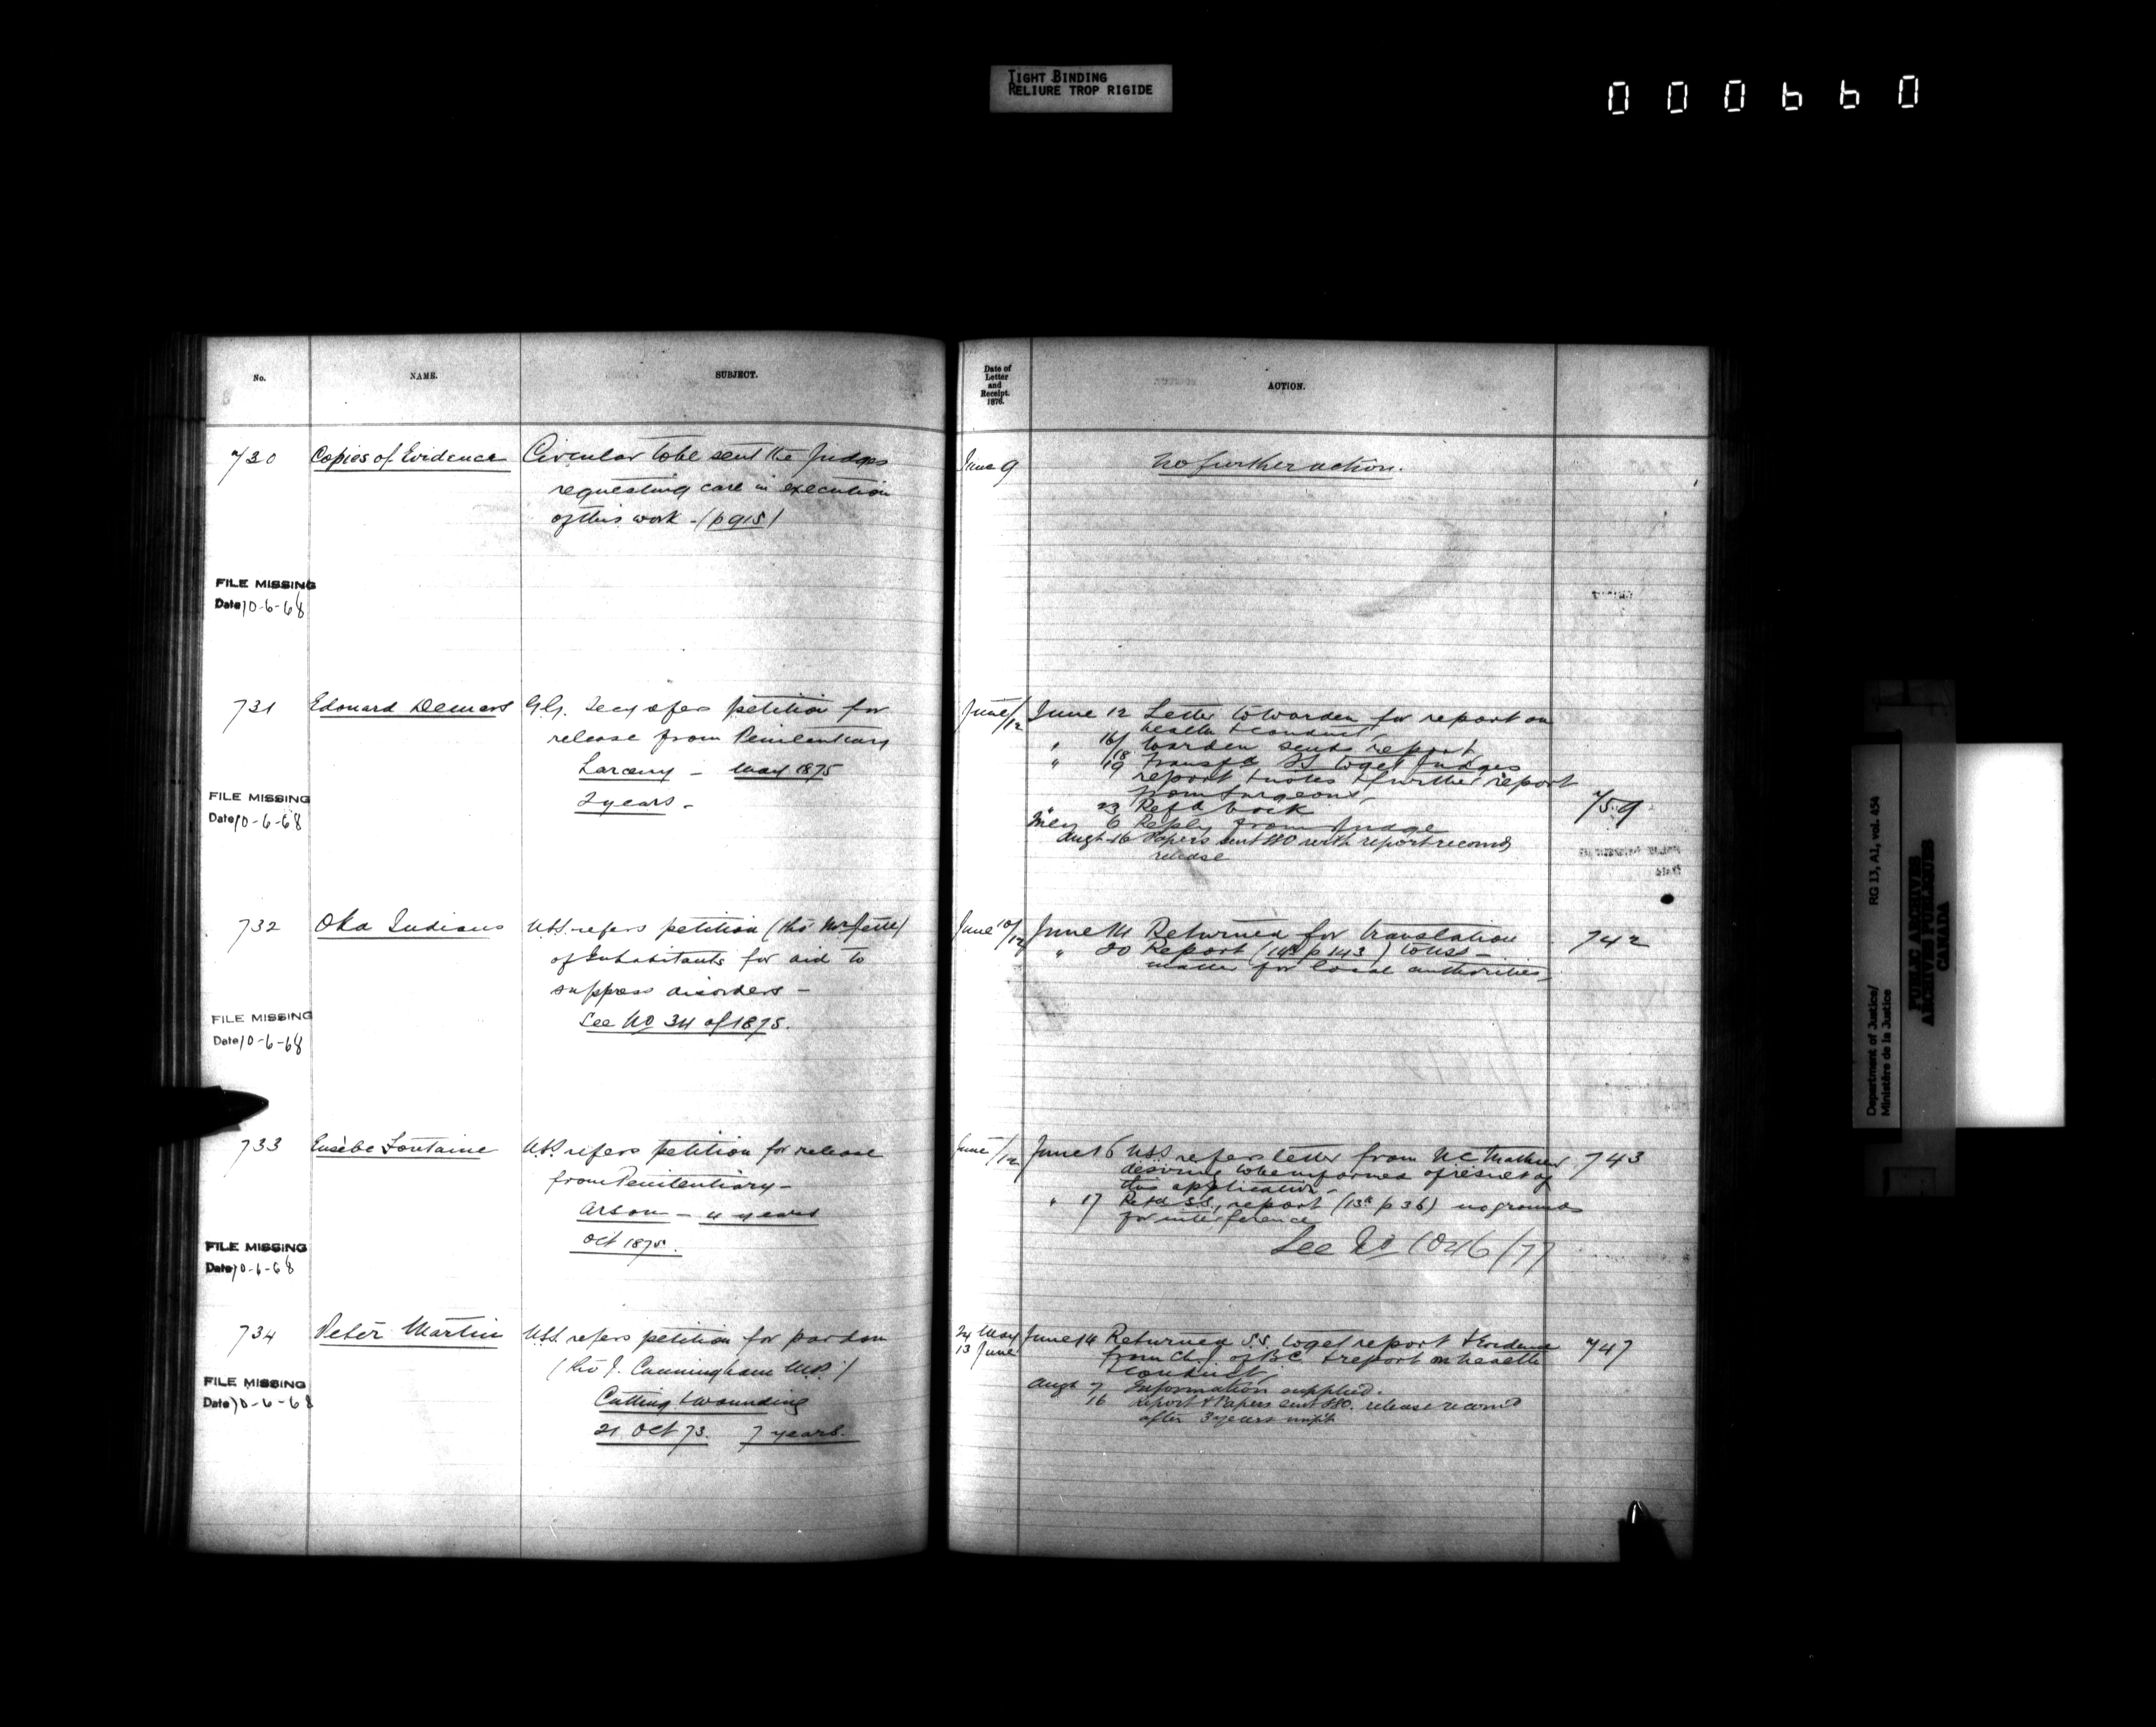 TIGHT BINDING
RELIURE TROP RIGIDE
000660
No.
NAME.
SUBJECT.
Date of
Letter
and
Receipt.
1876.
ACTION.
730
Copies of Evidence
Circular to be sent the Judges
requesting care in execution
of this work - (p 915)
June 9
No further action.
FILE MISSING
Date 10-6-68
731
Edouard Demers
G.G. Secy refers petition for
release from Penitentiary
Larceny - May 1875
2 years -
June/12
June 12 Letter to Warden for report on
health & conduct,
" 16/18 Warden sends report
" 19 Transfd SS to get Judges
report & notes & further report
from Surgeons,
" 23 Refd back
6 Reply from Judge
Augt 16 Papers sent with report recomdg
release
759
FILE MISSING
Date 10-6-68
732
Oka Indians
USS. refers petition (thro' Mr Jetté)
of Inhabitants for aid to
suppress disorders -
See No 34 of 1875.
June 10/12
June 14 Returned for translation
" 20 Report (14th p 143) to USS -
matter for local authorities,
742
FILE MISSING
Date 10-6-68
733
Eusèbe Fontaine
USS. refers petition for release
from Penitentiary -
Arson - 4 years
Oct 1875.
June/12
June 16 USS refers letter from Mathieu
desiring to be informed of result of
this application -
" 17 Retd SS, report (13th p 36) no grounds
for interference
See No 1046/77
743
FILE MISSING
Date 10-6-68
734
Peter Martin
USS. refers petition for pardon
(thro J. Cunningham M.P.)
Cutting & wounding
21 Oct 73. 7 years.
24 May
13 June
June 14 Returned SS. to get report & Evidence
from Ch. J. of B.C. & report on health
& conduct,
Augt 7 Information supplied.
16 Report & Papers sent release recomd
after 3 years
747
FILE MISSING
Date 10-6-68
Department of Justice/
Ministère de la Justice
RG 13, A1, vol. 454
PUBLIC ARCHIVES
ARCHIVES PUBLIQUES
CANADA